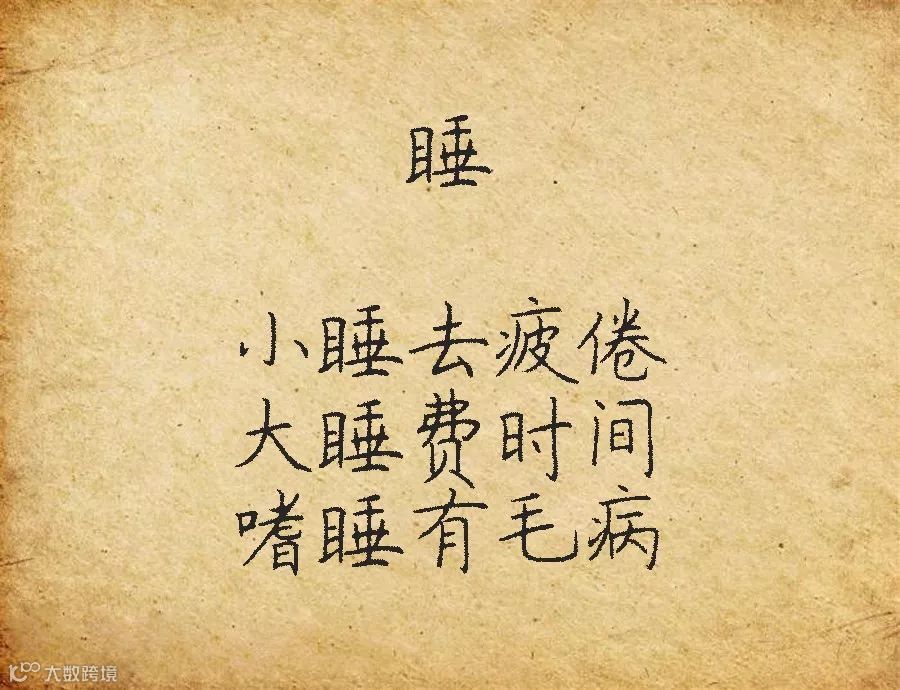 睡
小睡去疲倦
大睡费时间
嗜睡有毛病
大数跨境